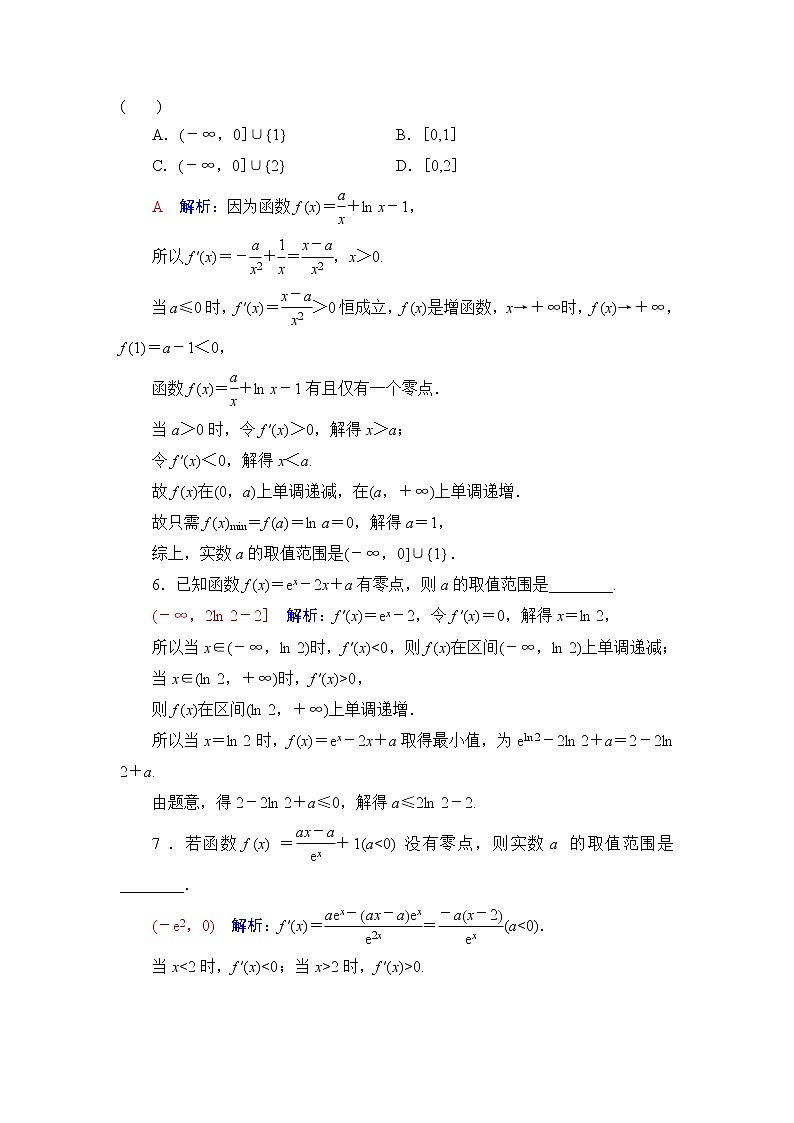 (　　)
A．(－∞，0]∪{1}　　B．[0,1]
C．(－∞，0]∪{2}　　D．[0,2]
A　解析：因为函数 f (x)＝a/x＋ln x－1，
所以 f ′(x)＝－a/x²＋1/x＝(x－a)/x²，x＞0.
当 a≤0 时，f ′(x)＝(x－a)/x²＞0 恒成立，f (x)是增函数，x→＋∞时，f (x)→＋∞，
f (1)＝a－1＜0，
函数 f (x)＝a/x＋ln x－1 有且仅有一个零点．
当 a＞0 时，令 f ′(x)＞0，解得 x＞a；
令 f ′(x)＜0，解得 x＜a.
故 f (x)在(0，a)上单调递减，在(a，＋∞)上单调递增．
故只需 f (x)min＝f (a)＝ln a＝0，解得 a＝1，
综上，实数 a 的取值范围是(－∞，0]∪{1}．
6．已知函数 f (x)＝eˣ－2x＋a 有零点，则 a 的取值范围是________.
(－∞，2ln 2－2]　解析：f ′(x)＝eˣ－2，令 f ′(x)＝0，解得 x＝ln 2，
所以当 x∈(－∞，ln 2)时，f ′(x)<0，则 f (x)在区间(－∞，ln 2)上单调递减；
当 x∈(ln 2，＋∞)时，f ′(x)>0，
则 f (x)在区间(ln 2，＋∞)上单调递增．
所以当 x＝ln 2 时，f (x)＝eˣ－2x＋a 取得最小值，为 e^(ln 2)－2ln 2＋a＝2－2ln
2＋a.
由题意，得 2－2ln 2＋a≤0，解得 a≤2ln 2－2.
7 ．若函数 f (x) ＝(ax－a)/eˣ＋ 1(a<0) 没有零点，则实数 a 的取值范围是
________．
(－e²，0)　解析：f ′(x)＝(aeˣ－(ax－a)eˣ)/e²ˣ＝(－a(x－2))/eˣ(a<0)．
当 x<2 时，f ′(x)<0；当 x>2 时，f ′(x)>0.